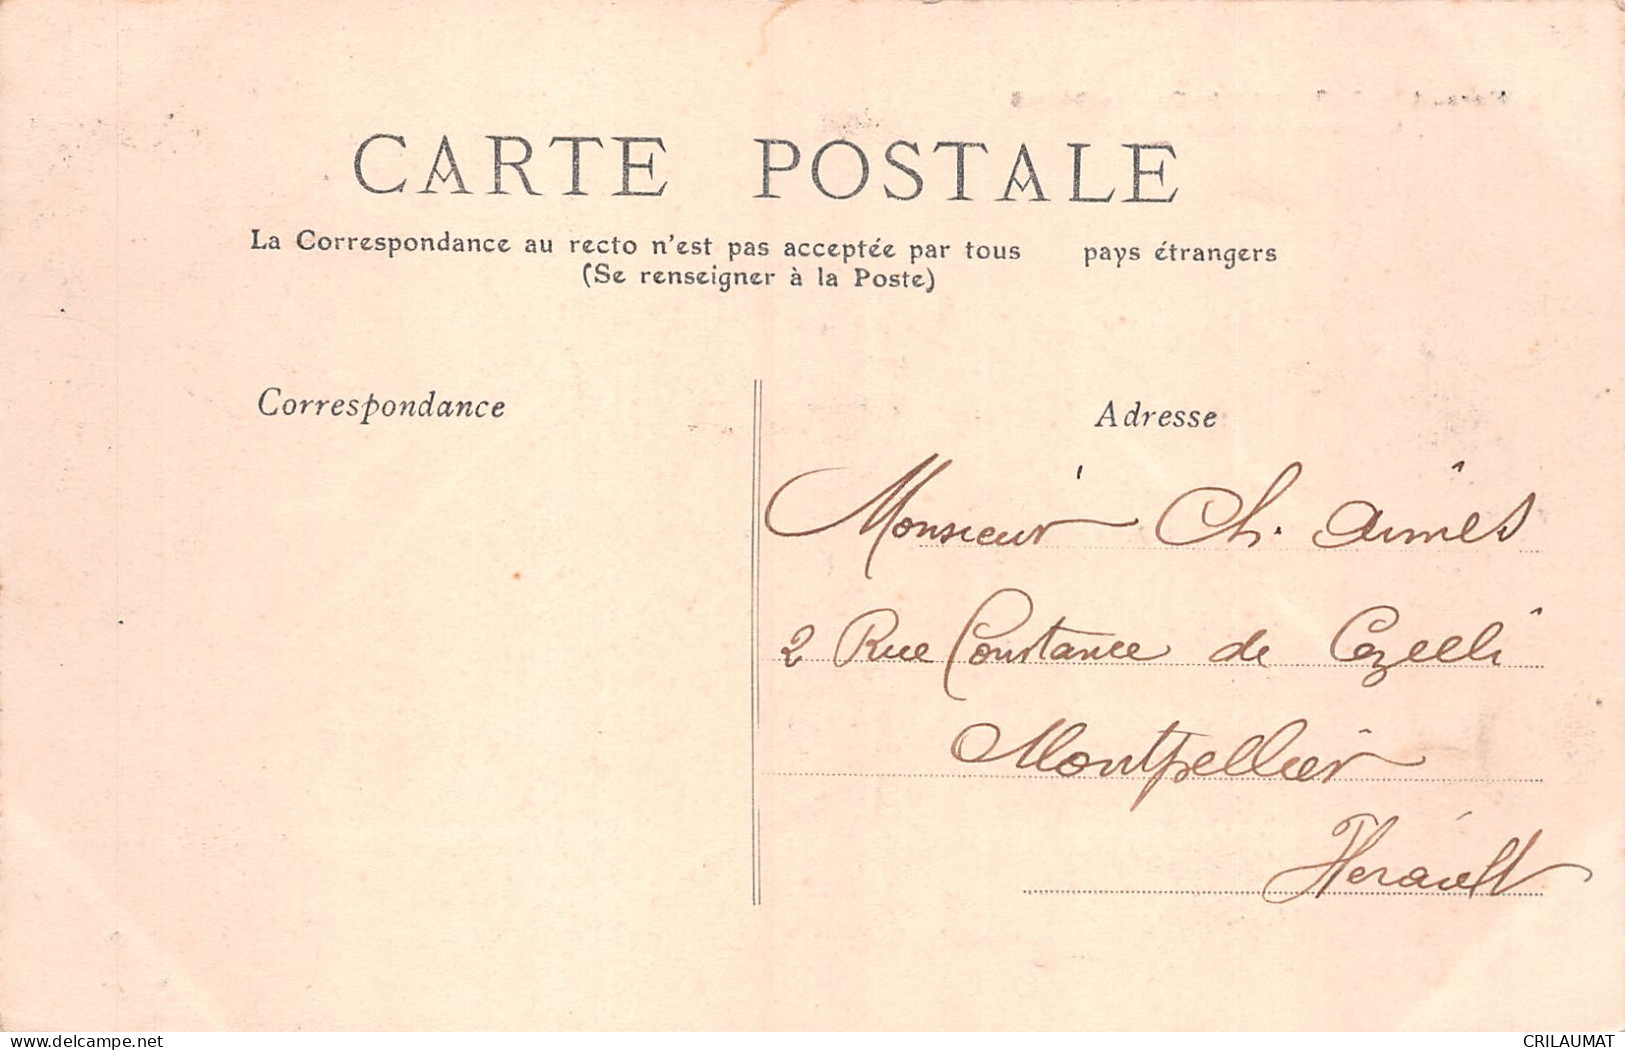 CARTE POSTALE
La Correspondance au recto n'est pas acceptée par tous pays étrangers
(Se renseigner à la Poste)
Correspondance
Adresse
Monsieur Ch.
2 Rue Constance de Cezelli
Montpellier
Hérault
delcampe.net
CRILAUMAT